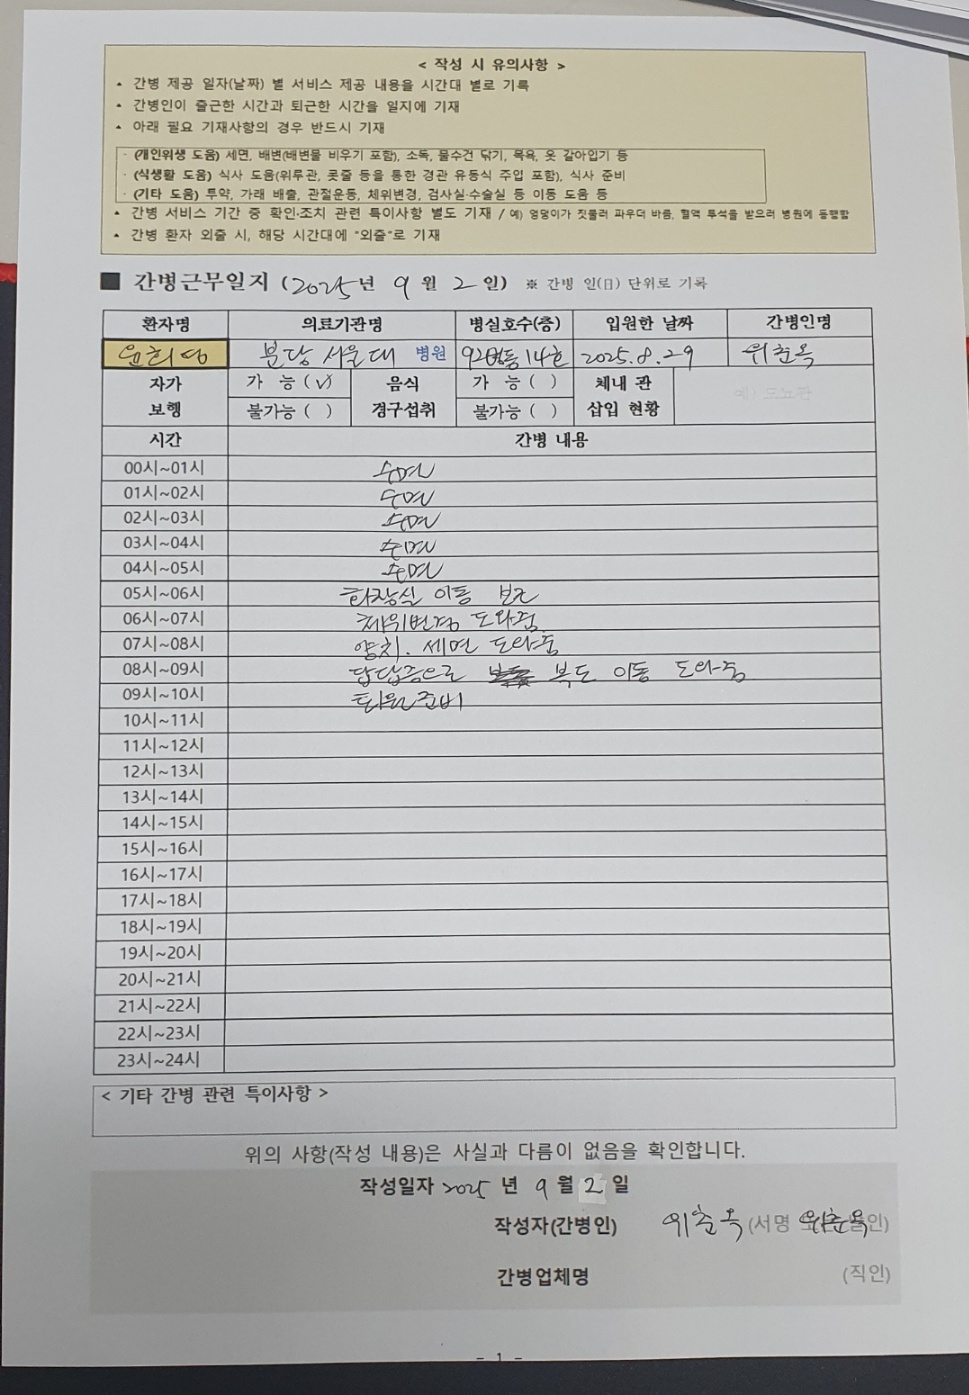 < 작성 시 유의사항 >
• 간병 제공 일자(날짜) 별 서비스 제공 내용을 시간대 별로 기록
• 간병인이 출근한 시간과 퇴근한 시간을 일지에 기재
• 아래 필요 기재사항의 경우 반드시 기재
· (개인위생 도움) 세면, 배변(배변물 비우기 포함), 소독, 물수건 닦기, 목욕, 옷 갈아입기 등
· (식생활 도움) 식사 도움(위루관, 콧줄 등을 통한 경관 유동식 주입 포함), 식사 준비
· (기타 도움) 투약, 가래 배출, 관절운동, 체위변경, 검사실·수술실 등 이동 도움 등
• 간병 서비스 기간 중 확인·조치 관련 특이사항 별도 기재 / 예) 엉덩이가 짓물러 파우더 바름, 혈액 투석을 받으러 병원에 동행함
• 간병 환자 외출 시, 해당 시간대에 "외출"로 기재
■ 간병근무일지 (2025년 9월 2일) ※ 간병 인(日) 단위로 기록
환자명 의료기관명 병실호수(층) 입원한 날짜 간병인명
분당 서울대 병원 92병동 14호 2025.8.29 위춘옥
자가 보행 가 능 (√) 음식 경구섭취 가 능 ( ) 체내 관 삽입 현황 예) 도뇨관
불가능 ( ) 불가능 ( )
시간 간병 내용
00시~01시 수면
01시~02시 수면
02시~03시 수면
03시~04시 수면
04시~05시 수면
05시~06시 화장실 이동 보조
06시~07시 체위변경 도와줌
07시~08시 양치. 세면 도와줌
08시~09시 답답증으로 복도 이동 도와줌
09시~10시 퇴원준비
10시~11시
11시~12시
12시~13시
13시~14시
14시~15시
15시~16시
16시~17시
17시~18시
18시~19시
19시~20시
20시~21시
21시~22시
22시~23시
23시~24시
< 기타 간병 관련 특이사항 >
위의 사항(작성 내용)은 사실과 다름이 없음을 확인합니다.
작성일자 2025 년 9 월 2 일
작성자(간병인) 위춘옥 (서명 위춘옥인)
간병업체명 (직인)
- 1 -